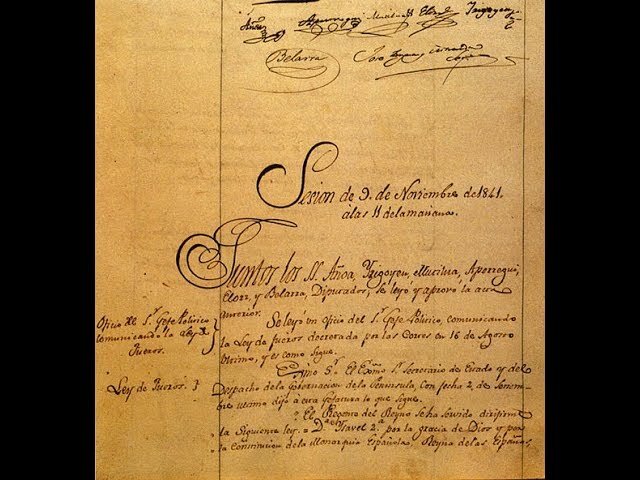 Añoa
Belarra
Sesion de 9. de Noviembre de 1841.
álas 11 delamañana.
Juntos los SS. Añoa, Yrigoyen, Muzibua, Aperregui,
Elorz, y Belarra, Diputados, se leyó y aprovó la acta
anterior.
Oficio del Sr. Gefe Politico
comunicando la Ley de
Fueros.
Se leyó un oficio del Sr. Gefe Politico, comunicando
la Ley de fueros decretada por las Cortes en 16 de Agosto
ultimo, y es como sigue.
Ley de Fueros.
Exmo Sr. El Exmo Sr. Secretario de Estado y del
Despacho dela Gobernacion de la Peninsula, con fecha 2 de Setiem-
bre ultimo dijo á esta gefatura lo que sigue.
"El Regente del Reyno se ha servido dirigirme
la siguiente ley. = Da. Ysavel 2.a por la gracia de Dios y por
la Constitucion de la Monarquia Española, Reyna de las Españas,